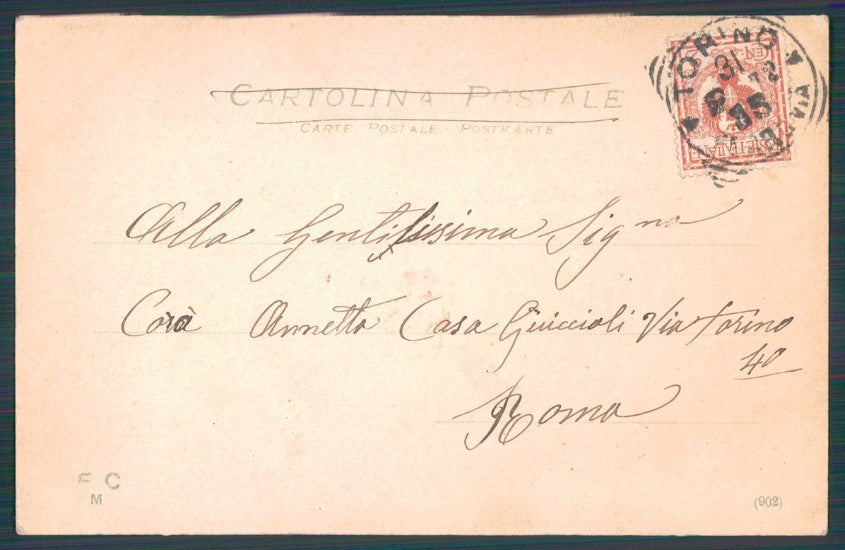 CARTOLINA POSTALE
CARTE POSTALE - POSTKARTE
TORINO
31
12
Alla Gentilissima Sigra
Corà Annetta Casa Guiccioli Via Torino
40
Roma
F C
M
(902)